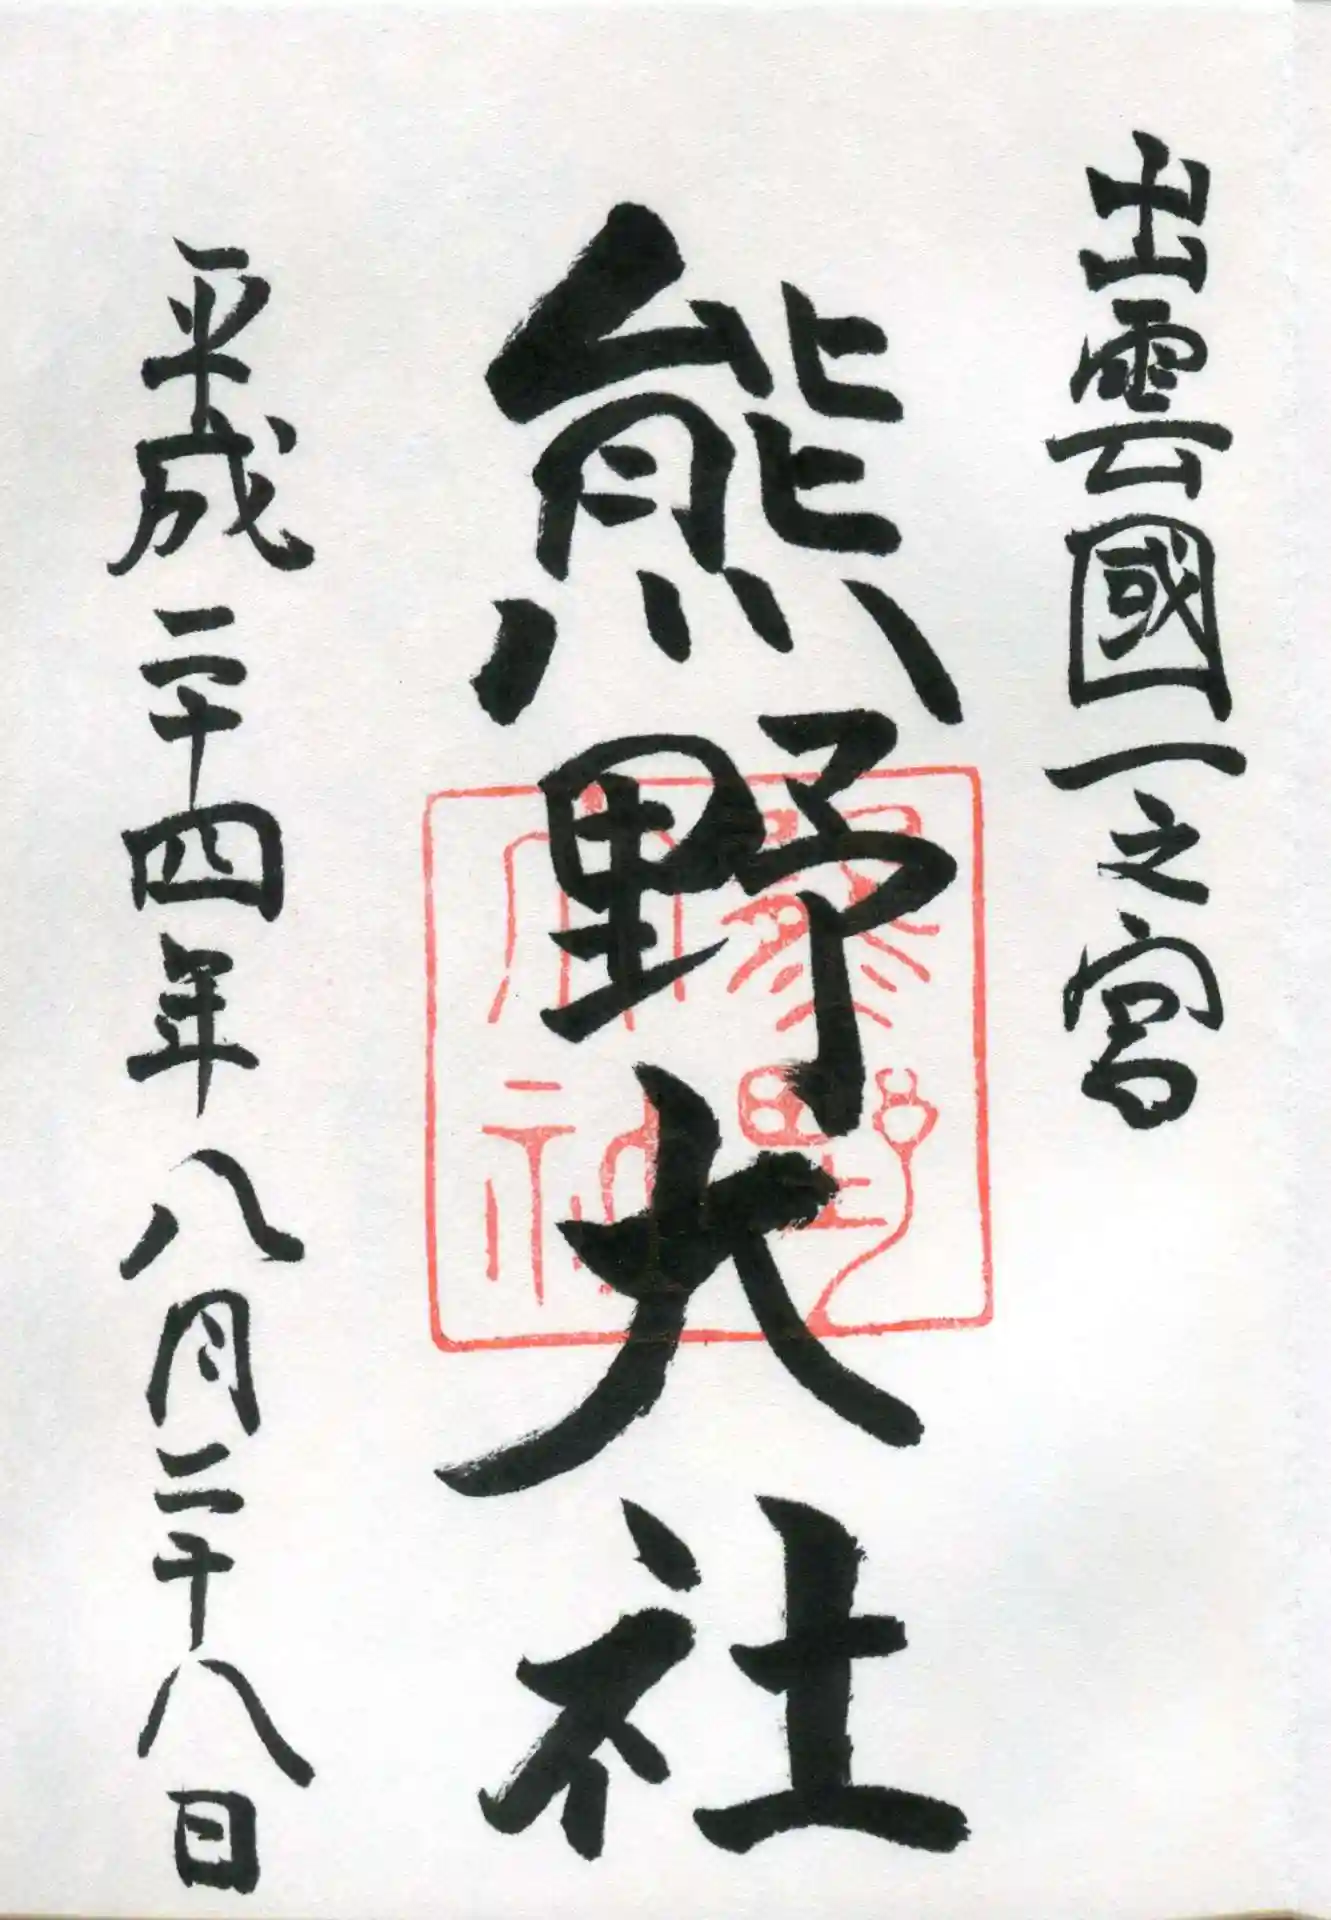 出雲國一之宮
熊野大社
平成二十四年八月二十八日